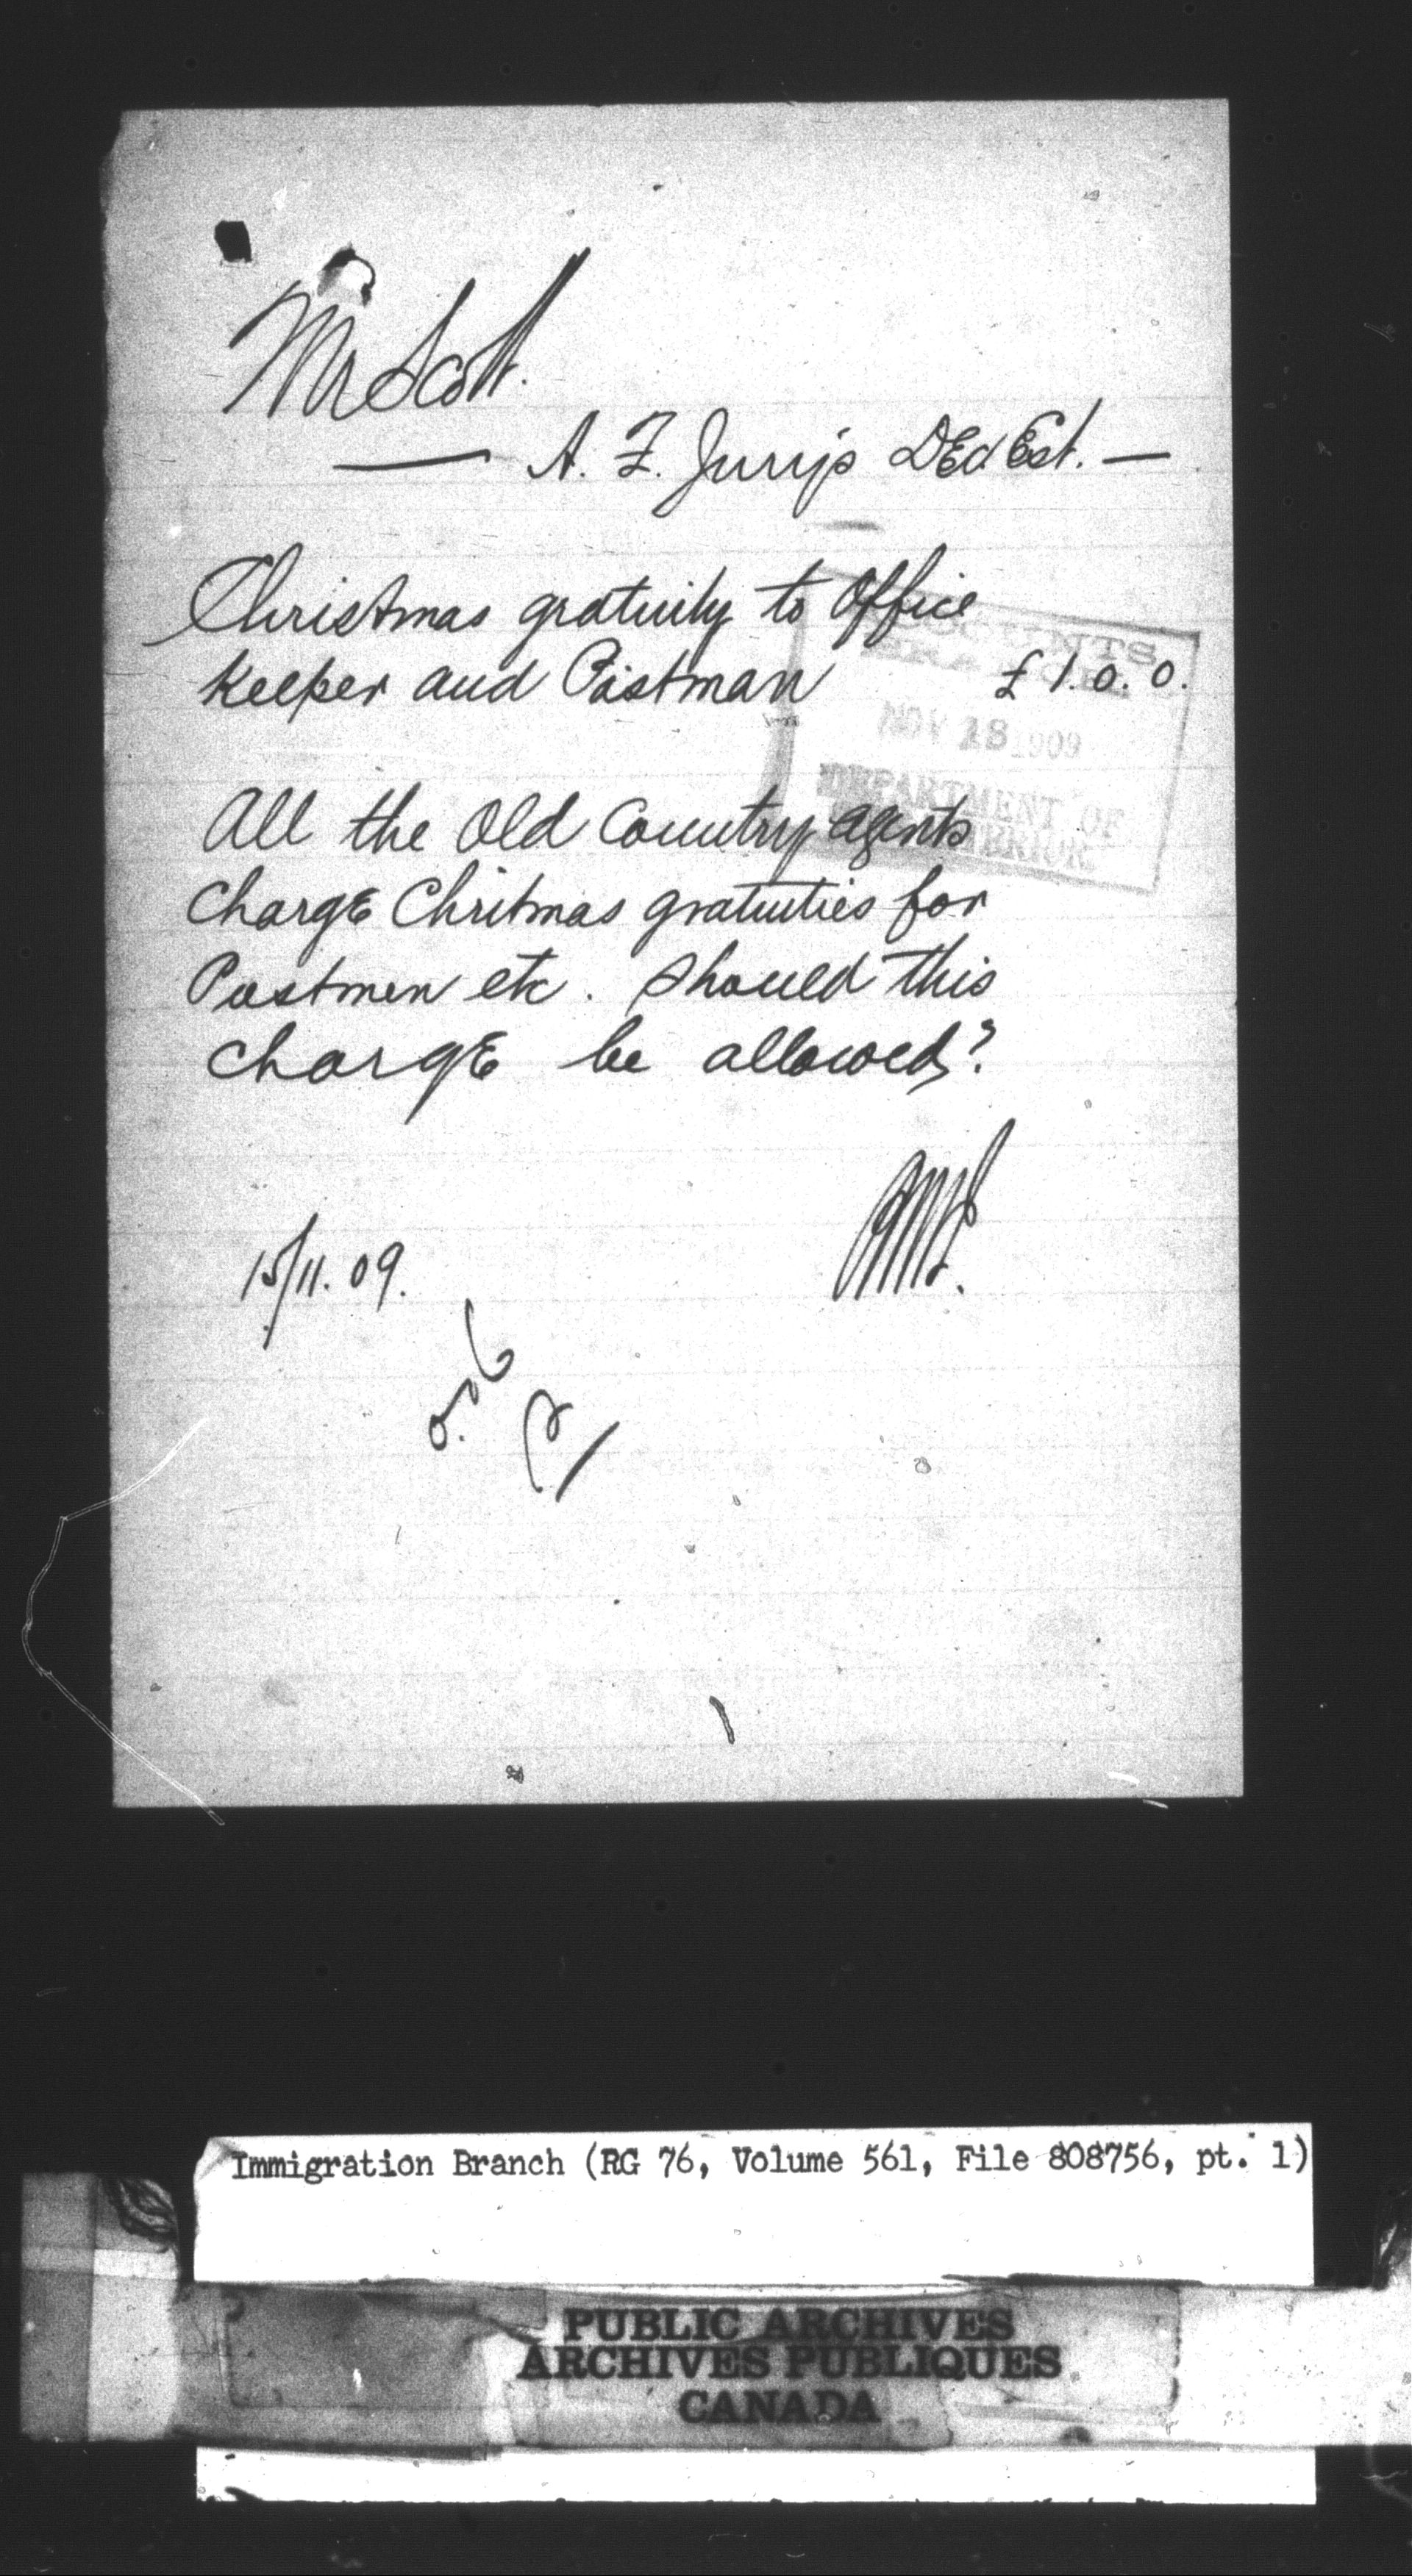 Mr Scott.
— A. F. Jury's Dec Est. —
Christmas gratuity to Office
Keeper and Postman £1.0.0.
ACCOUNTS
BRANCH
NOV 18 1909
DEPARTMENT OF
INTERIOR
All the Old Country agents
charge Chritmas gratuities for
Postmen etc. Should this
charge be allowed?
15/11.09.
Immigration Branch (RG 76, Volume 561, File 808756, pt. 1)
PUBLIC ARCHIVES
ARCHIVES PUBLIQUES
CANADA